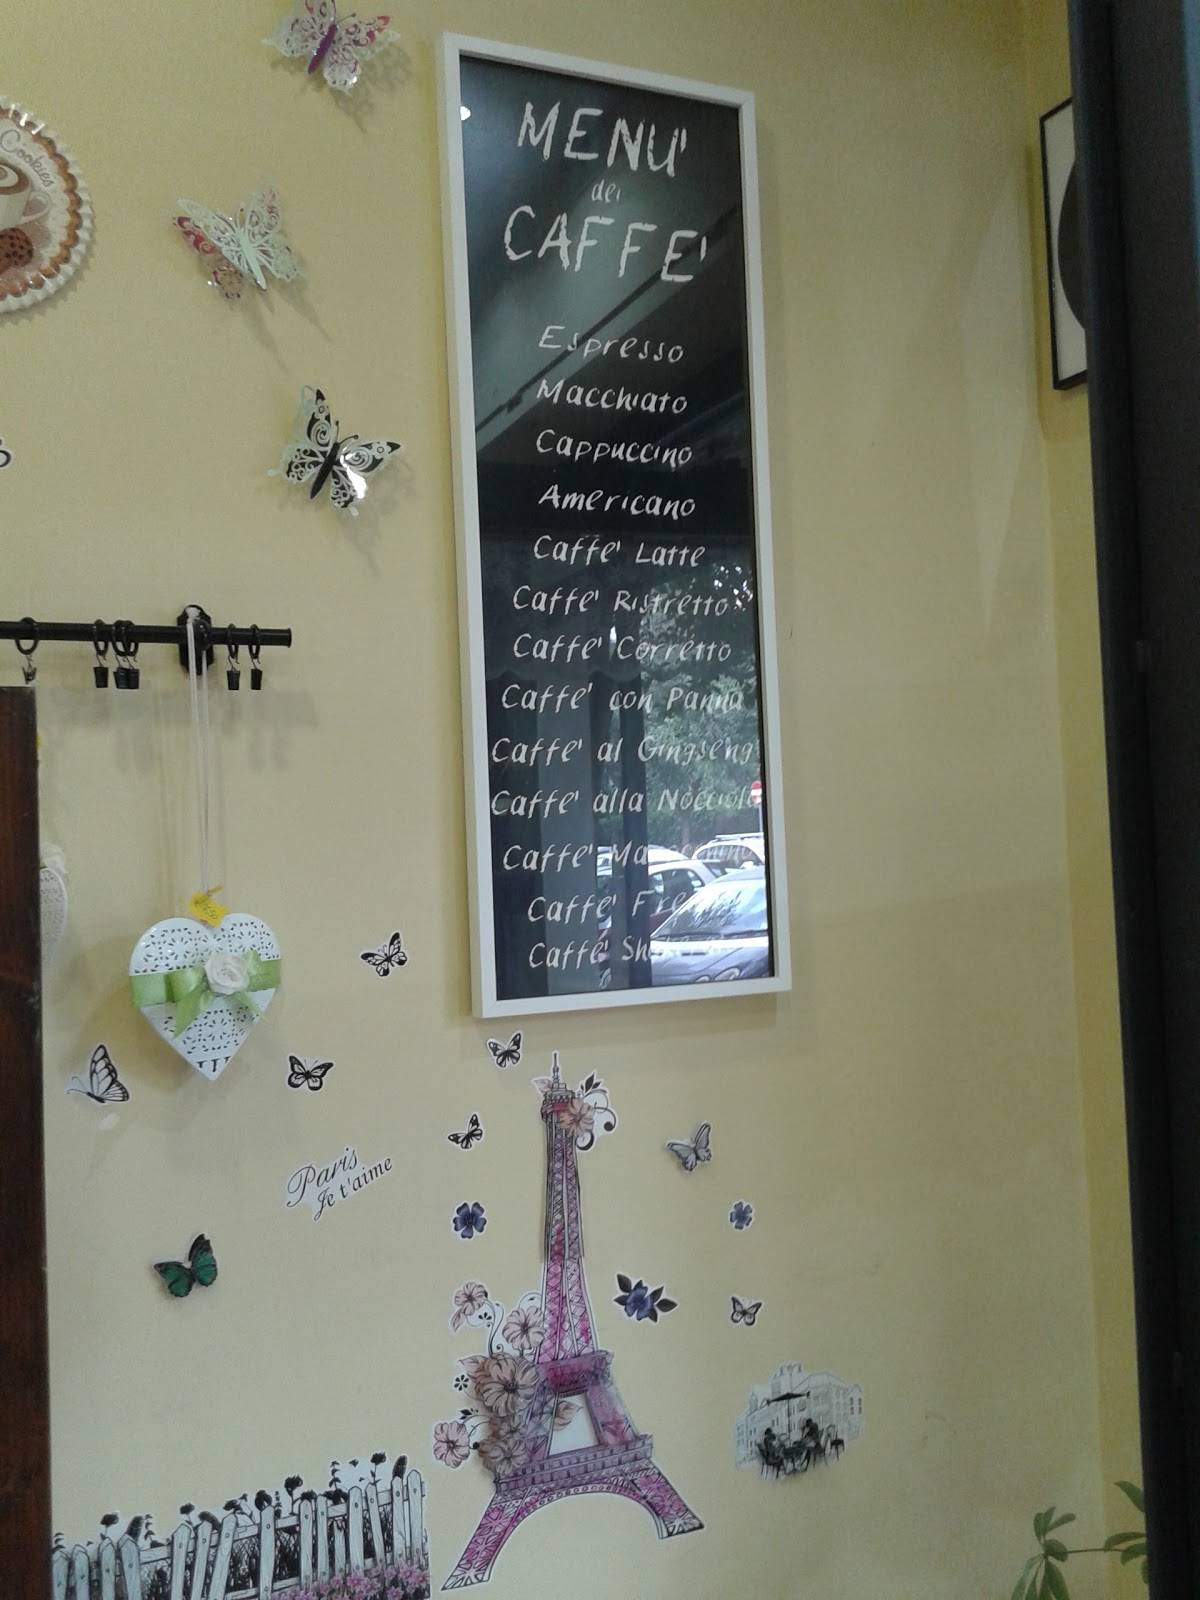 Cookies
MENU'
dei
CAFFE'
Espresso
Macchiato
Cappuccino
Americano
Caffe' Latte
Caffe' Ristretto
Caffe' Corretto
Caffe' con Panna
Caffe' al Gingseng
Caffe' alla Nocciola
Caffe' Marocchino
Caffe' Freddo
Caffe' Shakerato
Paris
Je t'aime